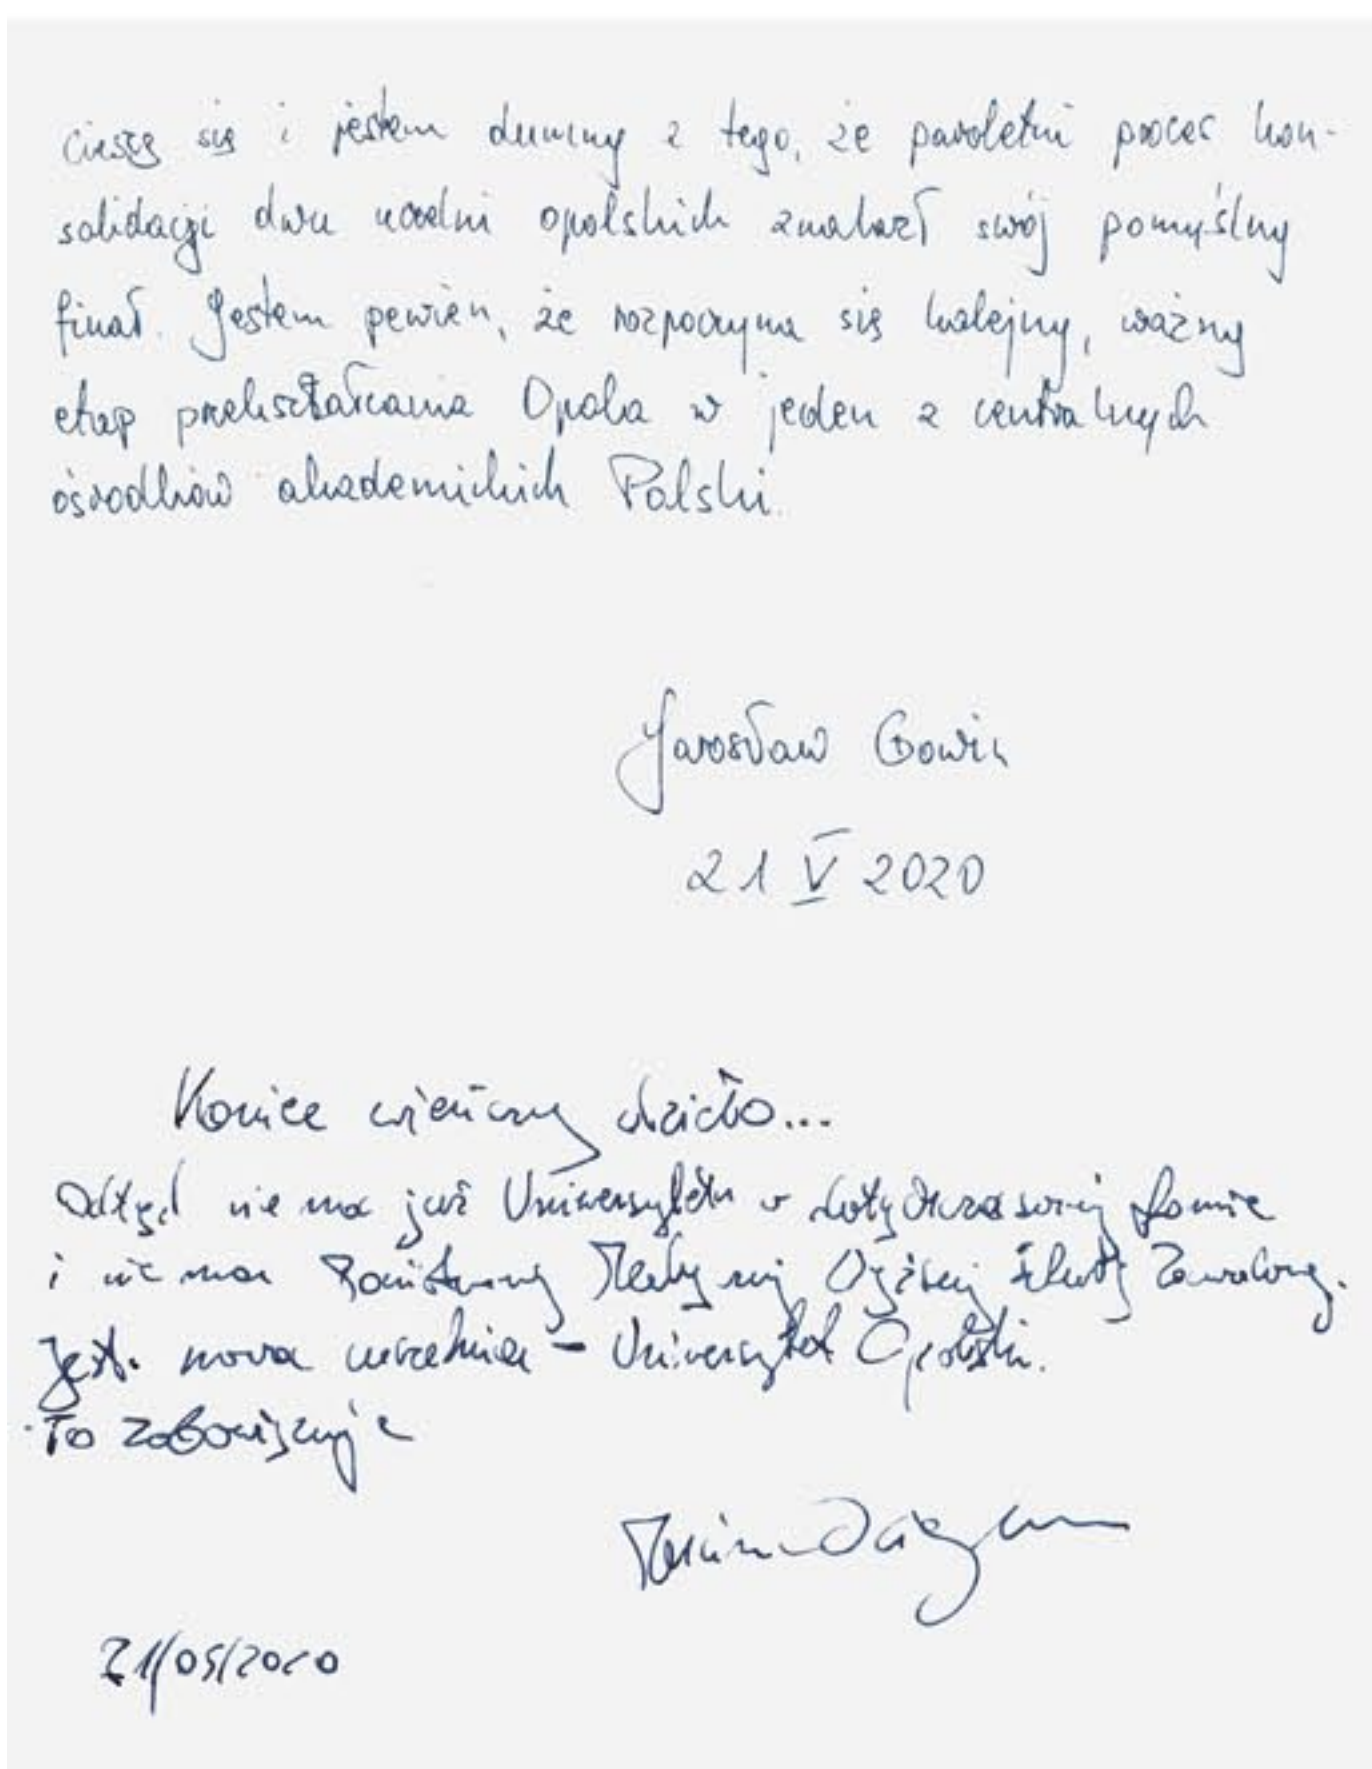 Cieszę się i jestem dumny z tego, że paroletni proces kon-
solidacji dwu uczelni opolskich znalazł swój pomyślny
finał. Jestem pewien, że rozpoczyna się kolejny, ważny
etap przekształcania Opola w jeden z centralnych
ośrodków akademickich Polski.
Jarosław Gowin
21 V 2020
Koniec wieńczy dzieło...
Odtąd nie ma już Uniwersytetu w dotychczasowej formie
i nie ma Państwowej Medycznej Wyższej Szkoły Zawodowej.
Jest nowa uczelnia - Uniwersytet Opolski.
To zobowiązuje
21/05/2020